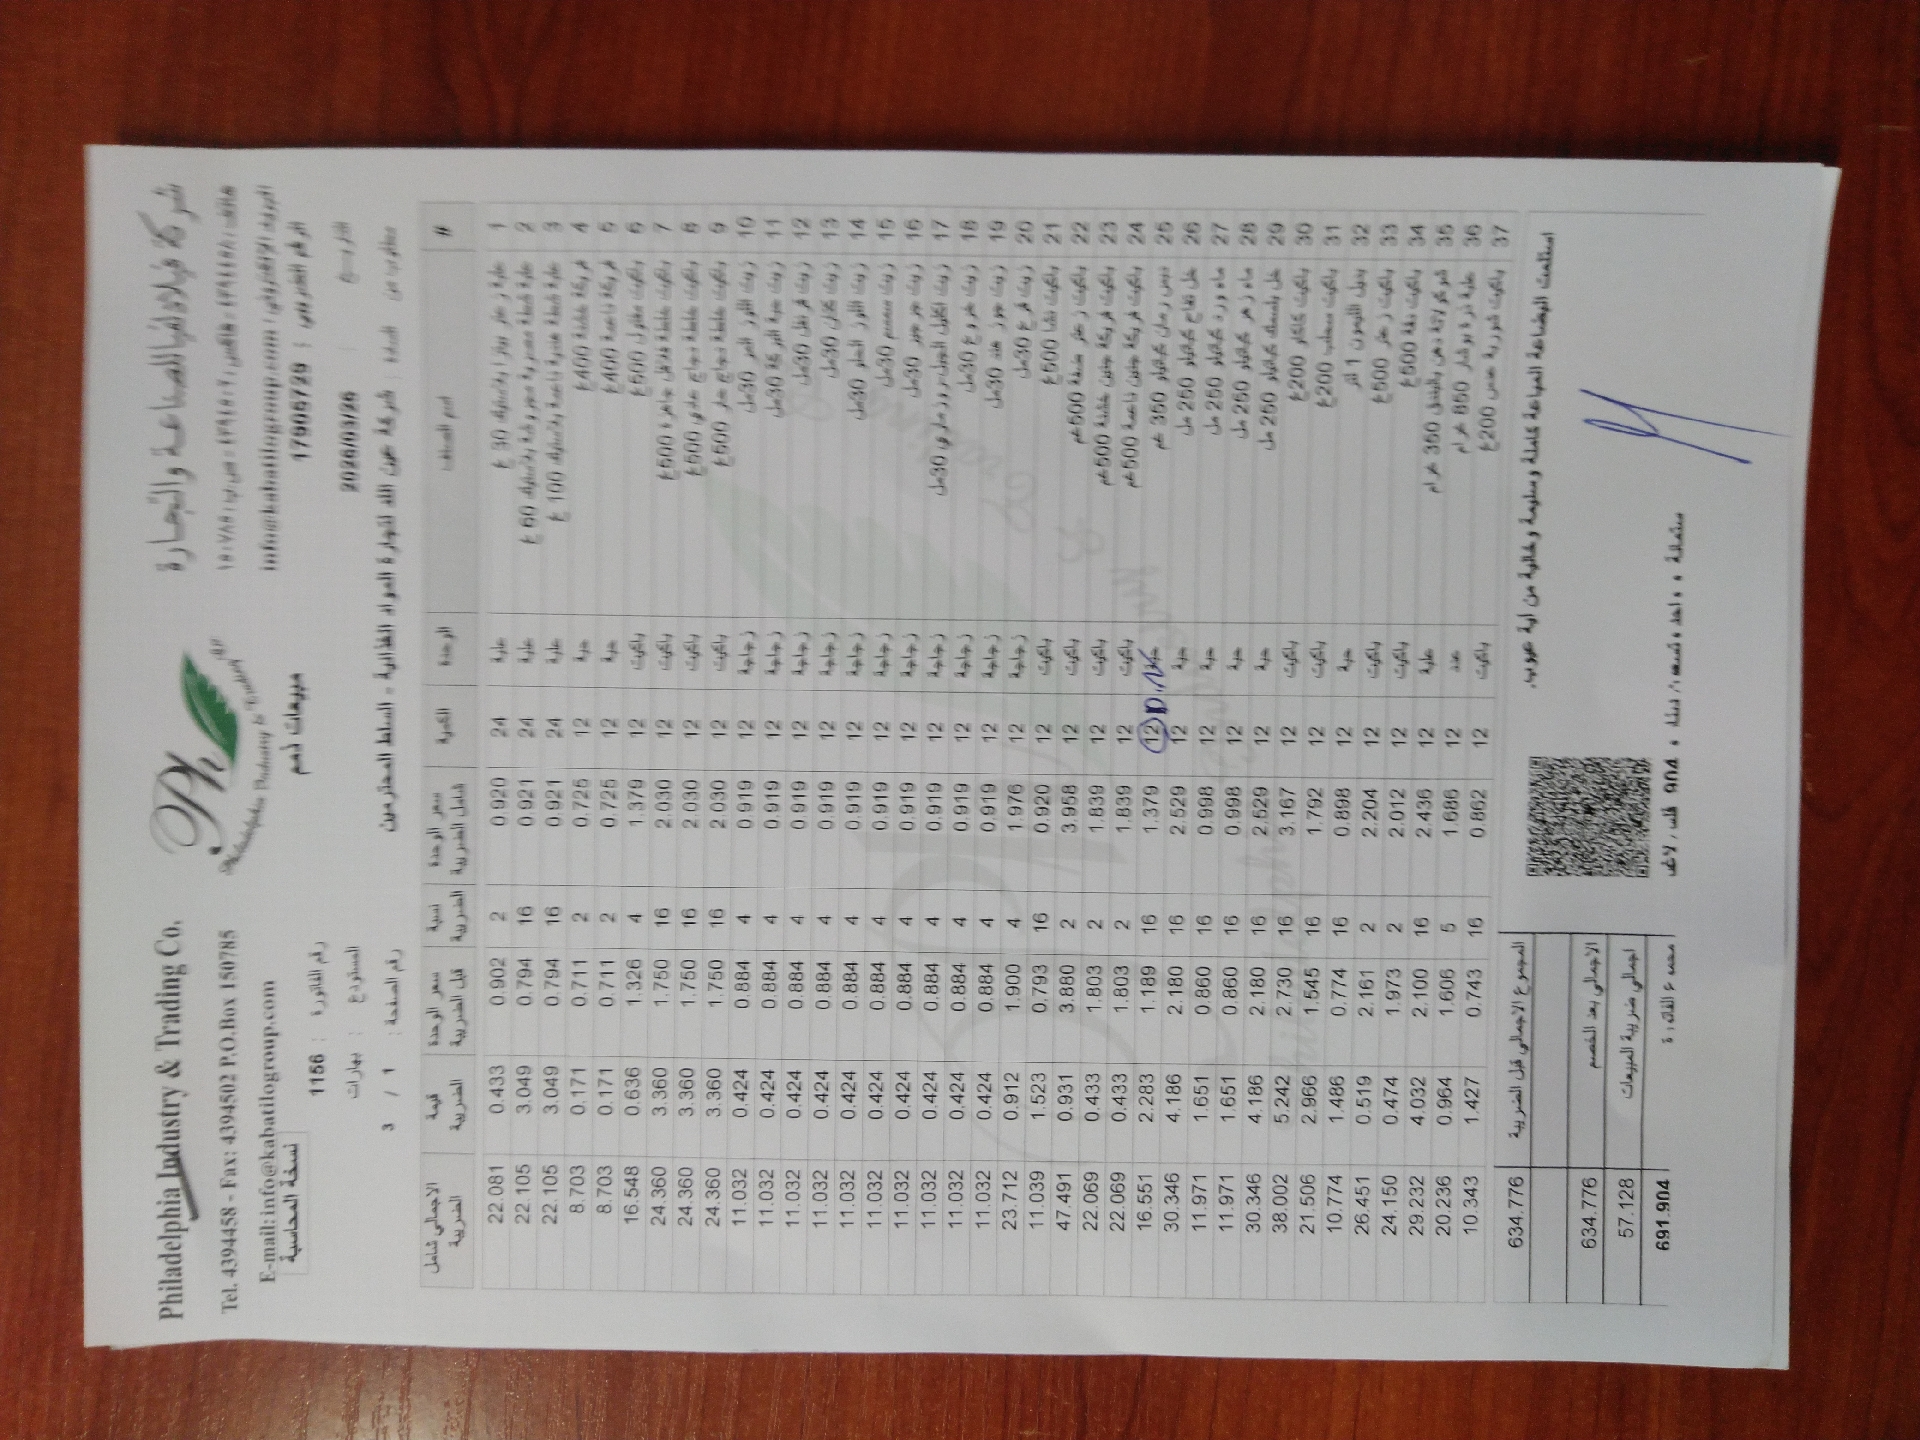 Philadelphia Industry & Trading Co.
شركة فيلادلفيا للصناعة والتجارة
Tel. 4394458 - Fax: 4394502 P.O.Box 150785
E-mail: info@kabatilogroup.com
Ph
Philadelphia Industry & Trading Co.
نسخة المحاسبة
مبيعات ذمم
الرقم الضريبي :
رقم الفاتورة : 1156
التاريخ : 2026/03/26
المستودع : بهارات
مطلوب من السادة : شركة عين الله لتجارة المواد الغذائية - السلط المحترمين
رقم الصفحة : 1 / 3
# اسم الصنف الوحدة الكمية سعر الوحدة شامل الضريبة نسبة الضريبة سعر الوحدة قبل الضريبة قيمة الضريبة الاجمالي شامل الضريبة
1 علبة زعتر بيتزا بلاستيك 30 غ علبة 24 0.920 2 0.902 0.433 22.081
2 علبة شطة مصرية مجروشة بلاستيك 60 غ علبة 24 0.921 16 0.794 3.049 22.105
3 علبة شطة هندية ناعمة بلاستيك 100 غ علبة 24 0.921 16 0.794 3.049 22.105
4 فريكة خشنة 400غ حبة 12 0.725 2 0.711 0.171 8.703
5 فريكة ناعمة 400غ حبة 12 0.725 2 0.711 0.171 8.703
6 باكيت مفتول 500غ باكيت 12 1.379 4 1.326 0.636 16.548
7 باكيت خلطة فلافل جاهزة 500غ باكيت 12 2.030 16 1.750 3.360 24.360
8 باكيت خلطة دجاج عادي 500غ باكيت 12 2.030 16 1.750 3.360 24.360
9 باكيت خلطة دجاج حار 500غ باكيت 12 2.030 16 1.750 3.360 24.360
10 زيت اللوز المر 30مل زجاجة 12 0.919 4 0.884 0.424 11.032
11 زيت حبة البركة 30مل زجاجة 12 0.919 4 0.884 0.424 11.032
12 زيت قرنفل 30مل زجاجة 12 0.919 4 0.884 0.424 11.032
13 زيت كتان 30مل زجاجة 12 0.919 4 0.884 0.424 11.032
14 زيت اللوز الحلو 30مل زجاجة 12 0.919 4 0.884 0.424 11.032
15 زيت سمسم 30مل زجاجة 12 0.919 4 0.884 0.424 11.032
16 زيت جرجير 30مل زجاجة 12 0.919 4 0.884 0.424 11.032
17 زيت اكليل الجبل-روزماري 30مل زجاجة 12 0.919 4 0.884 0.424 11.032
18 زيت خروع 30مل زجاجة 12 0.919 4 0.884 0.424 11.032
19 زيت جوز هند 30مل زجاجة 12 0.919 4 0.884 0.424 11.032
20 زيت قرع 30مل زجاجة 12 1.976 4 1.900 0.912 23.712
21 باكيت نشا 500غ باكيت 12 0.920 16 0.793 1.523 11.039
22 باكيت زعتر ملكة 500غم باكيت 12 3.958 2 3.880 0.931 47.491
23 باكيت فريكة جنين خشنة 500غم باكيت 12 1.839 2 1.803 0.433 22.069
24 باكيت فريكة جنين ناعمة 500غم باكيت 12 1.839 2 1.803 0.433 22.069
25 دبس رمان كباتيلو 350 غم 12 1.379 16 1.189 2.283 16.551
26 خل تفاح كباتيلو 250 مل حبة 12 2.529 16 2.180 4.186 30.346
27 ماء ورد كباتيلو 250 مل حبة 12 0.998 16 0.860 1.651 11.971
28 ماء زهر كباتيلو 250 مل حبة 12 0.998 16 0.860 1.651 11.971
29 خل بلسمك كباتيلو 250 مل حبة 12 2.529 16 2.180 4.186 30.346
30 باكيت كاكاو 200غ باكيت 12 3.167 16 2.730 5.242 38.002
31 باكيت سحلب 200غ باكيت 12 1.792 16 1.545 2.966 21.506
32 بديل الليمون 1 لتر حبة 12 0.898 16 0.774 1.486 10.774
33 باكيت زعتر 500غ باكيت 12 2.204 2 2.161 0.519 26.451
34 باكيت دقة 500غ باكيت 12 2.012 2 1.973 0.474 24.150
35 شوكولاتة دهن بالبندق 350 غرام علبة 12 2.436 16 2.100 4.032 29.232
36 علبة ذرة بوشار 850 غرام عدد 12 1.686 5 1.606 0.964 20.236
37 باكيت شوربة عدس 200غ باكيت 12 0.862 16 0.743 1.427 10.343
المجموع الاجمالي قبل الضريبة 634.776
الاجمالي بعد الخصم 634.776
اجمالي ضريبة المبيعات 57.128
مجموع الفاتورة 691.904
استلمت البضاعة المباعة كاملة وسليمة وخالية من اية عيوب.
ستمائة و واحد وتسعون دينار و 904 فلس لاغير